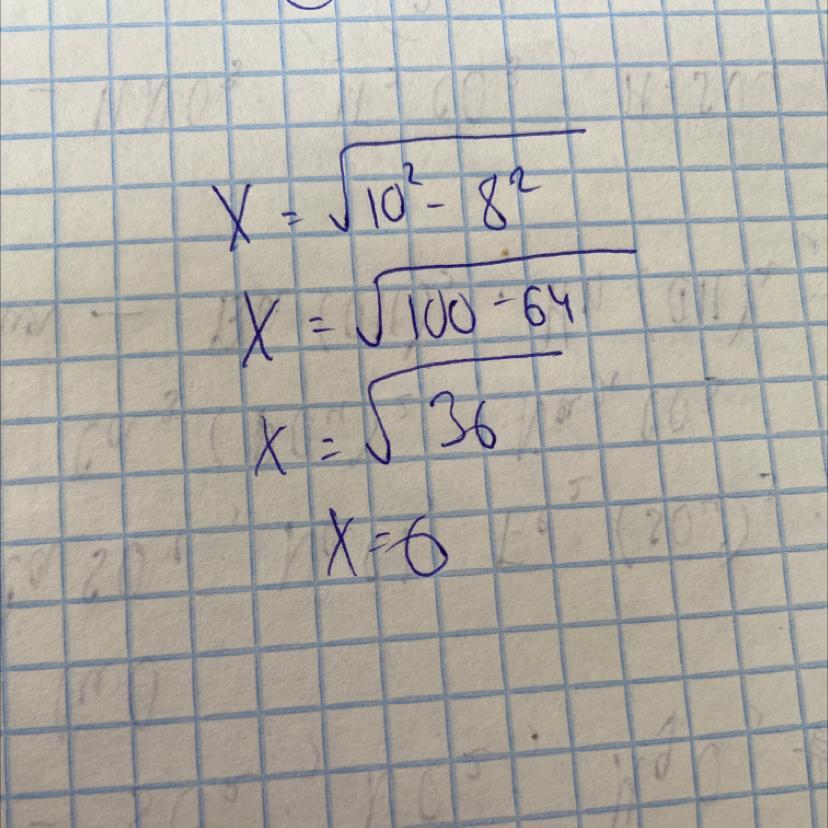 X = √10² - 8²
X = √100 - 64
X = √36
X = 6